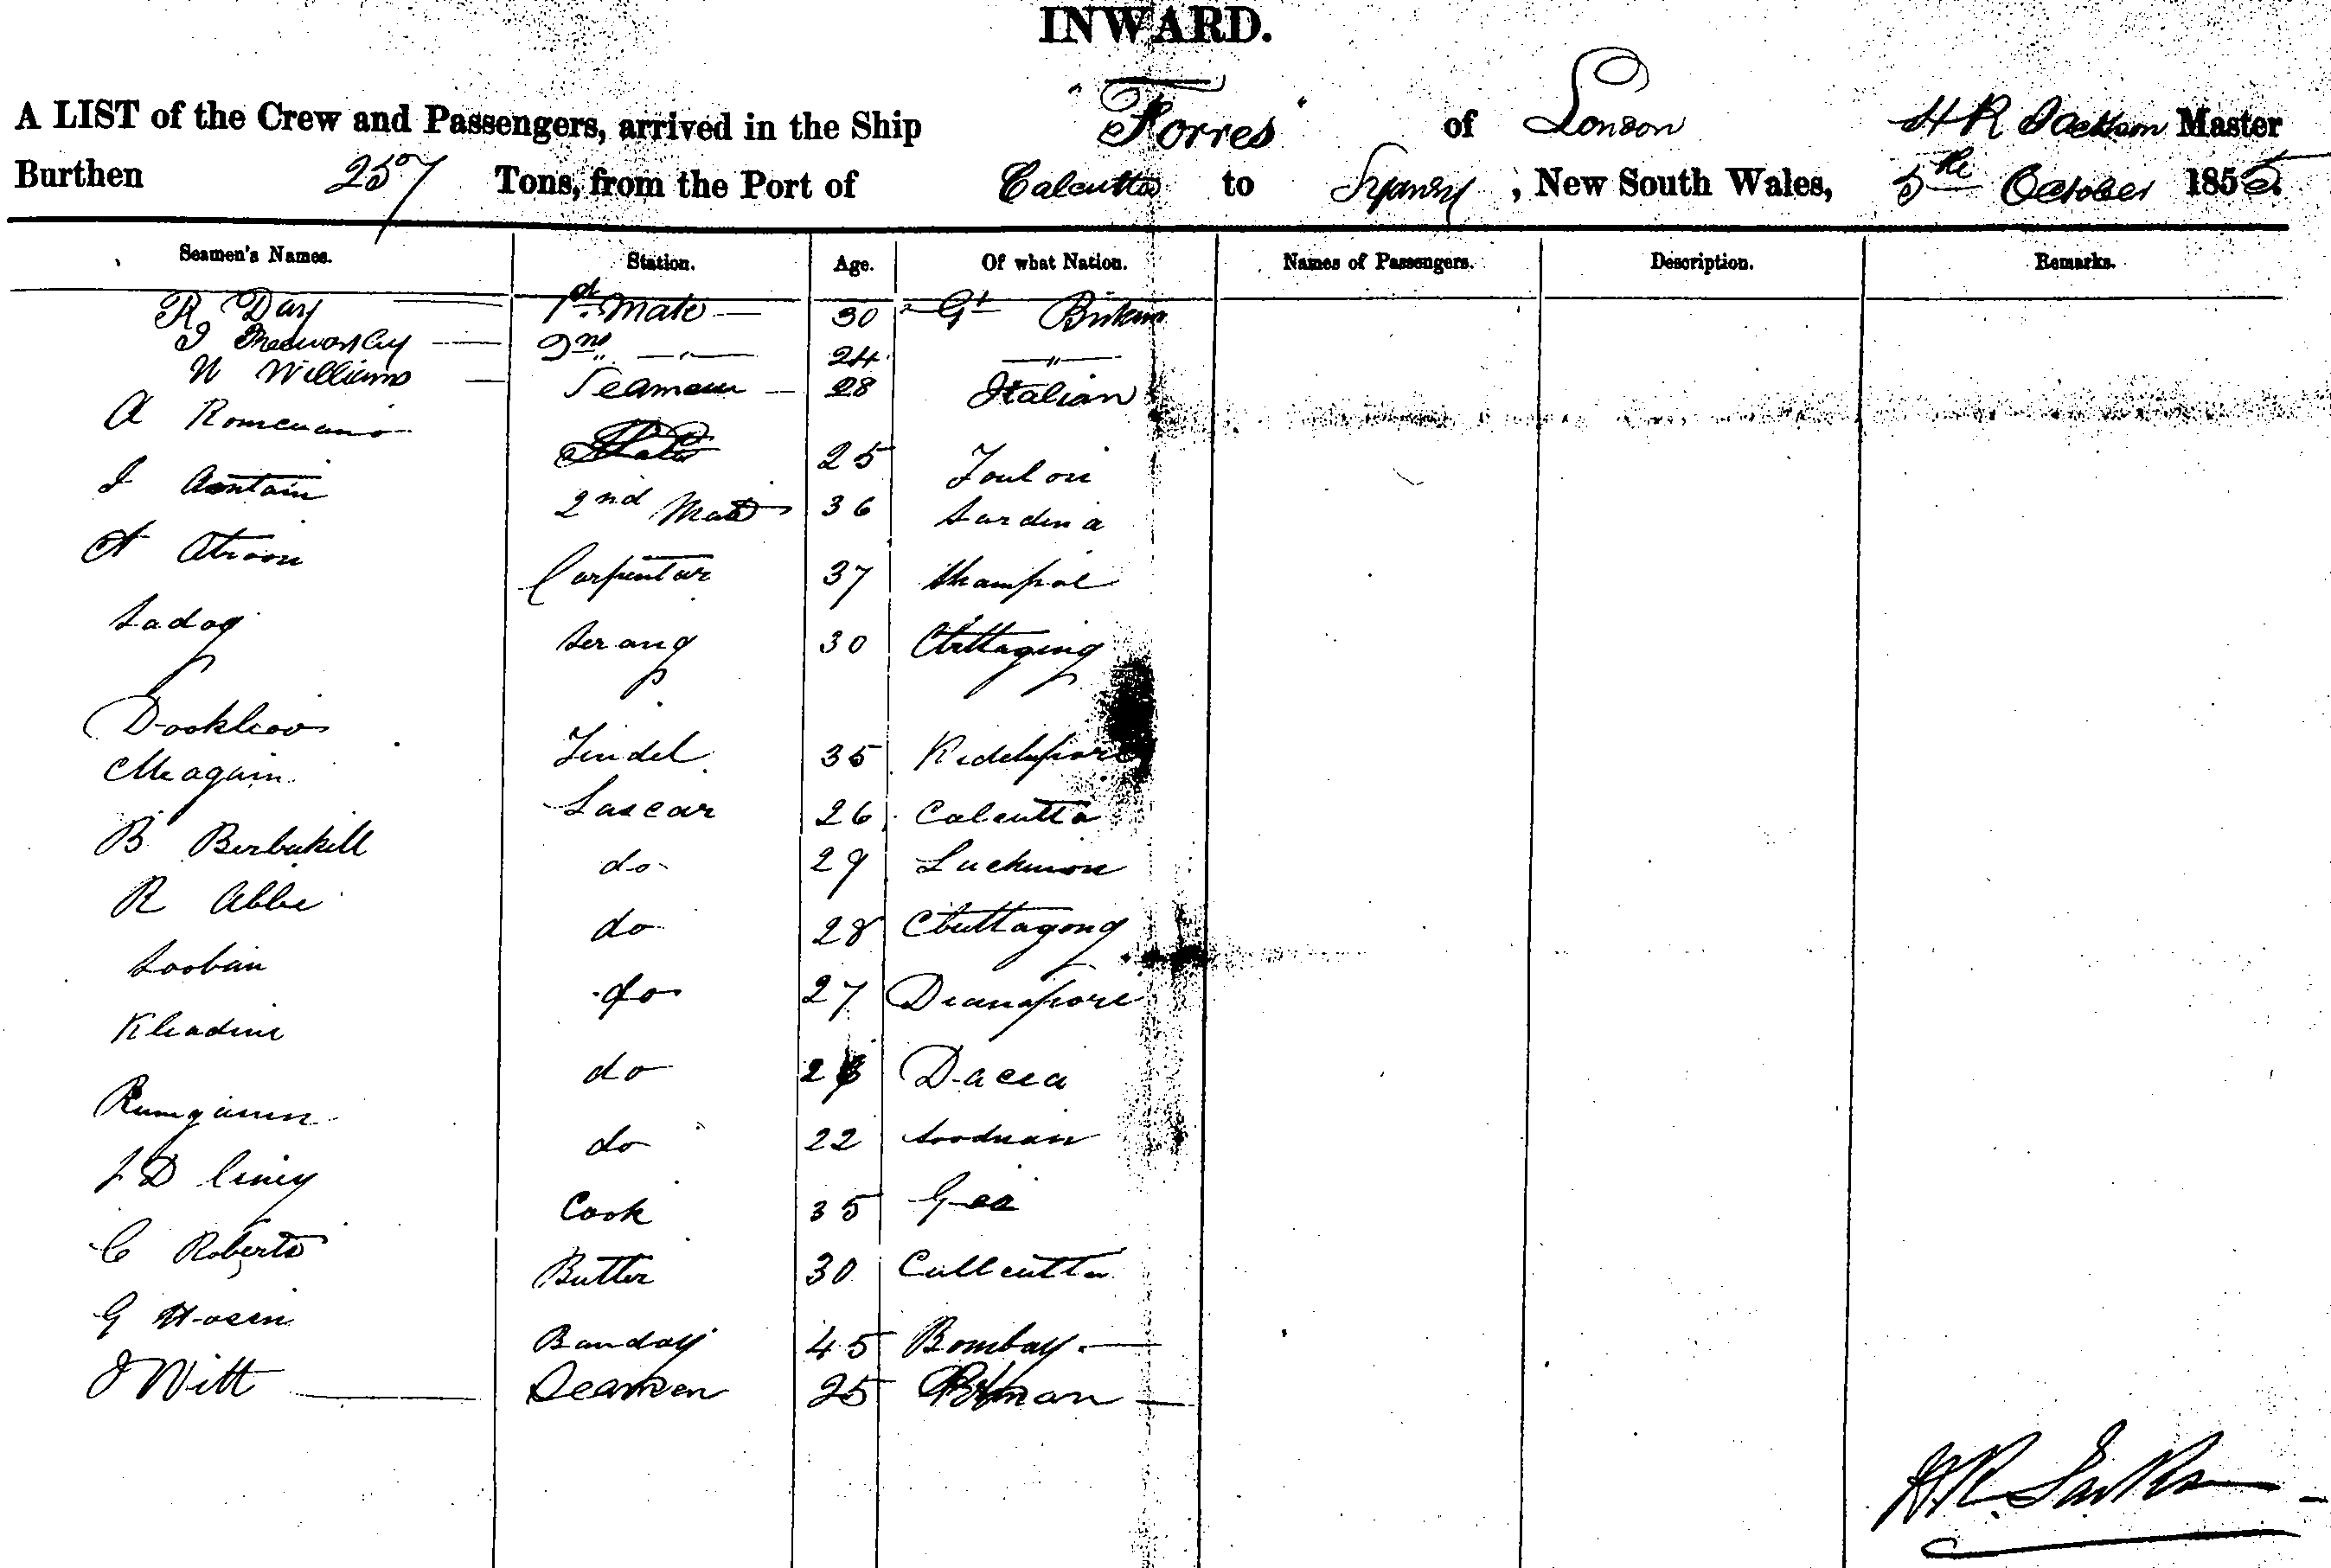 INWARD.
A LIST of the Crew and Passengers, arrived in the Ship "Torres" of London H R Jackson Master
Burthen 257 Tons, from the Port of Calcutta to Sydney, New South Wales, 5the October 1855.
Seamen's Names. Station. Age. Of what Nation. Names of Passengers. Description. Remarks.
R Day 1st Mate 30 Gt Britain
J 2nd " — " — 24 — " —
W Williams Seaman 28 Italian
A Romenano 25 Toulon
J Aontain 2nd Mate 36 Sardina
A Atroon Carpenter 37
Sadog Serang 30 Chittagong
Dookhoo Tindel 35 Kidderpore
Meagain Lascar 26 Calcutta
B do 29 Lucknow
R Abbe do 28 Chittagong
Sooban do 27 Deanapore
Khadine do Dacca
Rumgamm do 22
J D Cook 35 Goa
C Roberts Butler 30 Callcutta
G Hosein Banday 45 Bombay
J Witt Seamen 25
H.R. Jackson